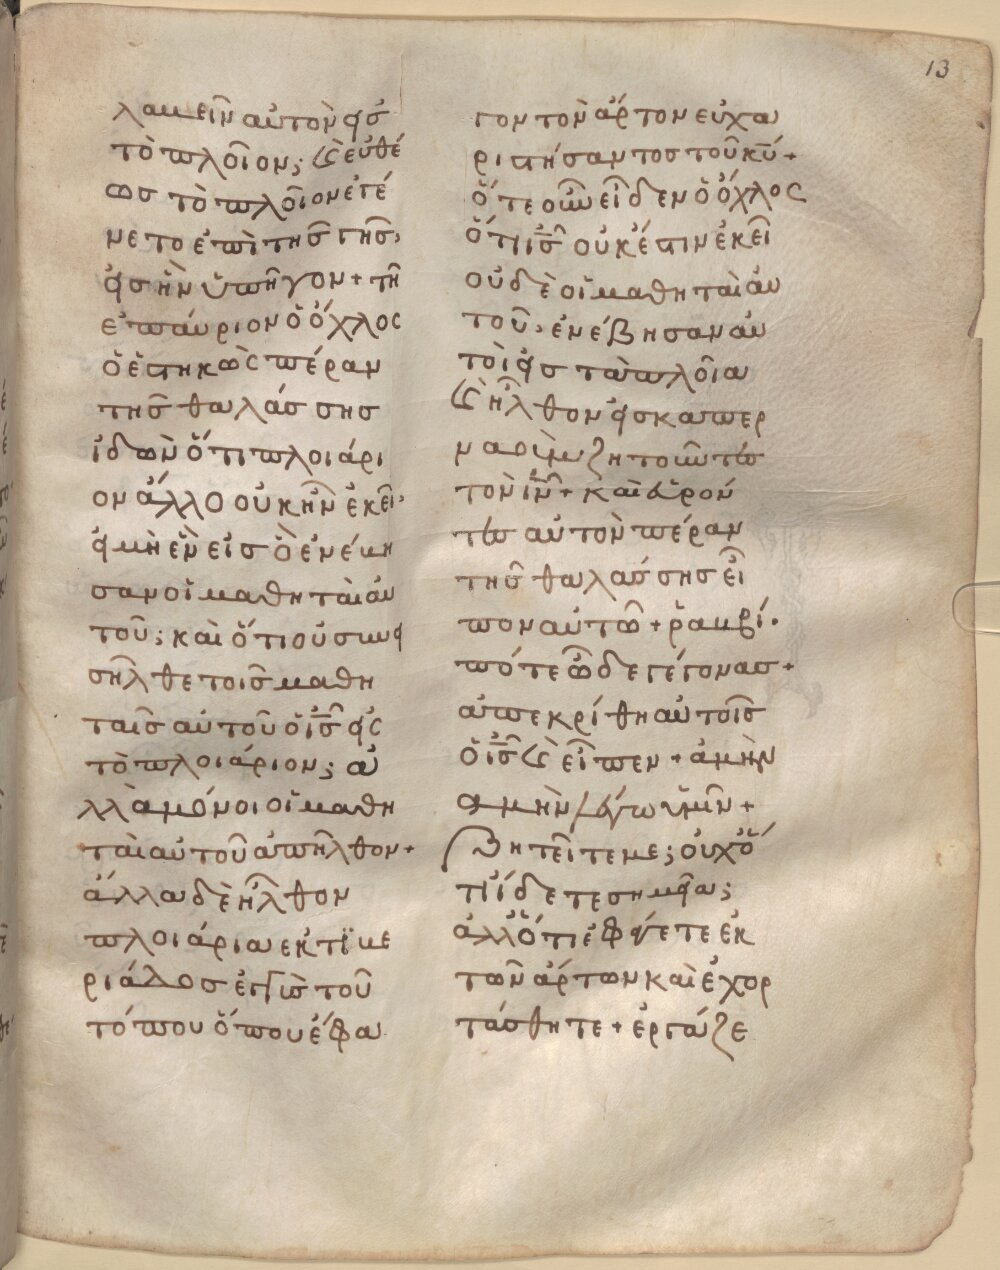 13
λαβεῖν αὐτὸν εἰσ
τὸ πλοῖον; καὶ εὐθέ
ωσ τὸ πλοῖον ἐγέ
νετο ἐπὶ τῆσ γῆσ,
εἰσ ἣν ὑπῆγον + τῆ
ἐπαύριον ὁ ὄχλος
ὁ ἑστηκὼς πέραν
τῆσ θαλάσσησ
ἰδὼν ὅτι πλοιάρι
ον ἄλλο οὐκ ἦν ἐκεῖ,
εἰ μὴ ἓν εἰσ ὃ ἐνέβη
σαν οἱ μαθηταὶ αὐ
τοῦ; καὶ ὅτι οὐ συνει
σῆλθε τοῖσ μαθη
ταῖσ αὐτοῦ ὁ ἰσ εἰς
τὸ πλοιάριον; ἀ
λλὰ μόνοι οἱ μαθη
ταὶ αὐτοῦ ἀπῆλθον +
ἄλλα δὲ ἦλθον
πλοιάρια ἐκ τϊβε
ριάδοσ ἐγγὺσ τοῦ
τόπου ὅπου ἔφα
γον τὸν ἄρτον εὐχα
ριστήσαντοσ τοῦ κυ +
ὅτε οὖν εἶδεν ὁ ὄχλος
ὅτι ισ οὐκ ἔστιν ἐκεῖ
οὐδὲ οἱ μαθηταὶ αὐ
τοῦ, ἐνέβησαν αὐ
τοὶ εἰσ τὰ πλοῖα
καὶ ἦλθον εἰσ καπερ
ναοὺμ ζητοῦντεσ
τὸν ιν + καὶ εὑρόν
τεσ αὐτὸν πέραν
τῆσ θαλάσσησ εἶ
πον αὐτῶ + ῥαββί.
πότε ὧδε γέγονασ +
ἀπεκρίθη αὐτοῖσ
ὁ ισ καὶ εἶπεν + ἀμὴν
ἀμὴν λέγω ὑμῖν +
ζητεῖτε με; οὐχ ὅ
τι ἴδετε σημεῖα;
ἀλλ ὅτι ἐφάγετε ἐκ
τῶν ἄρτων καὶ ἐχορ
τάσθητε + ἐργάζε